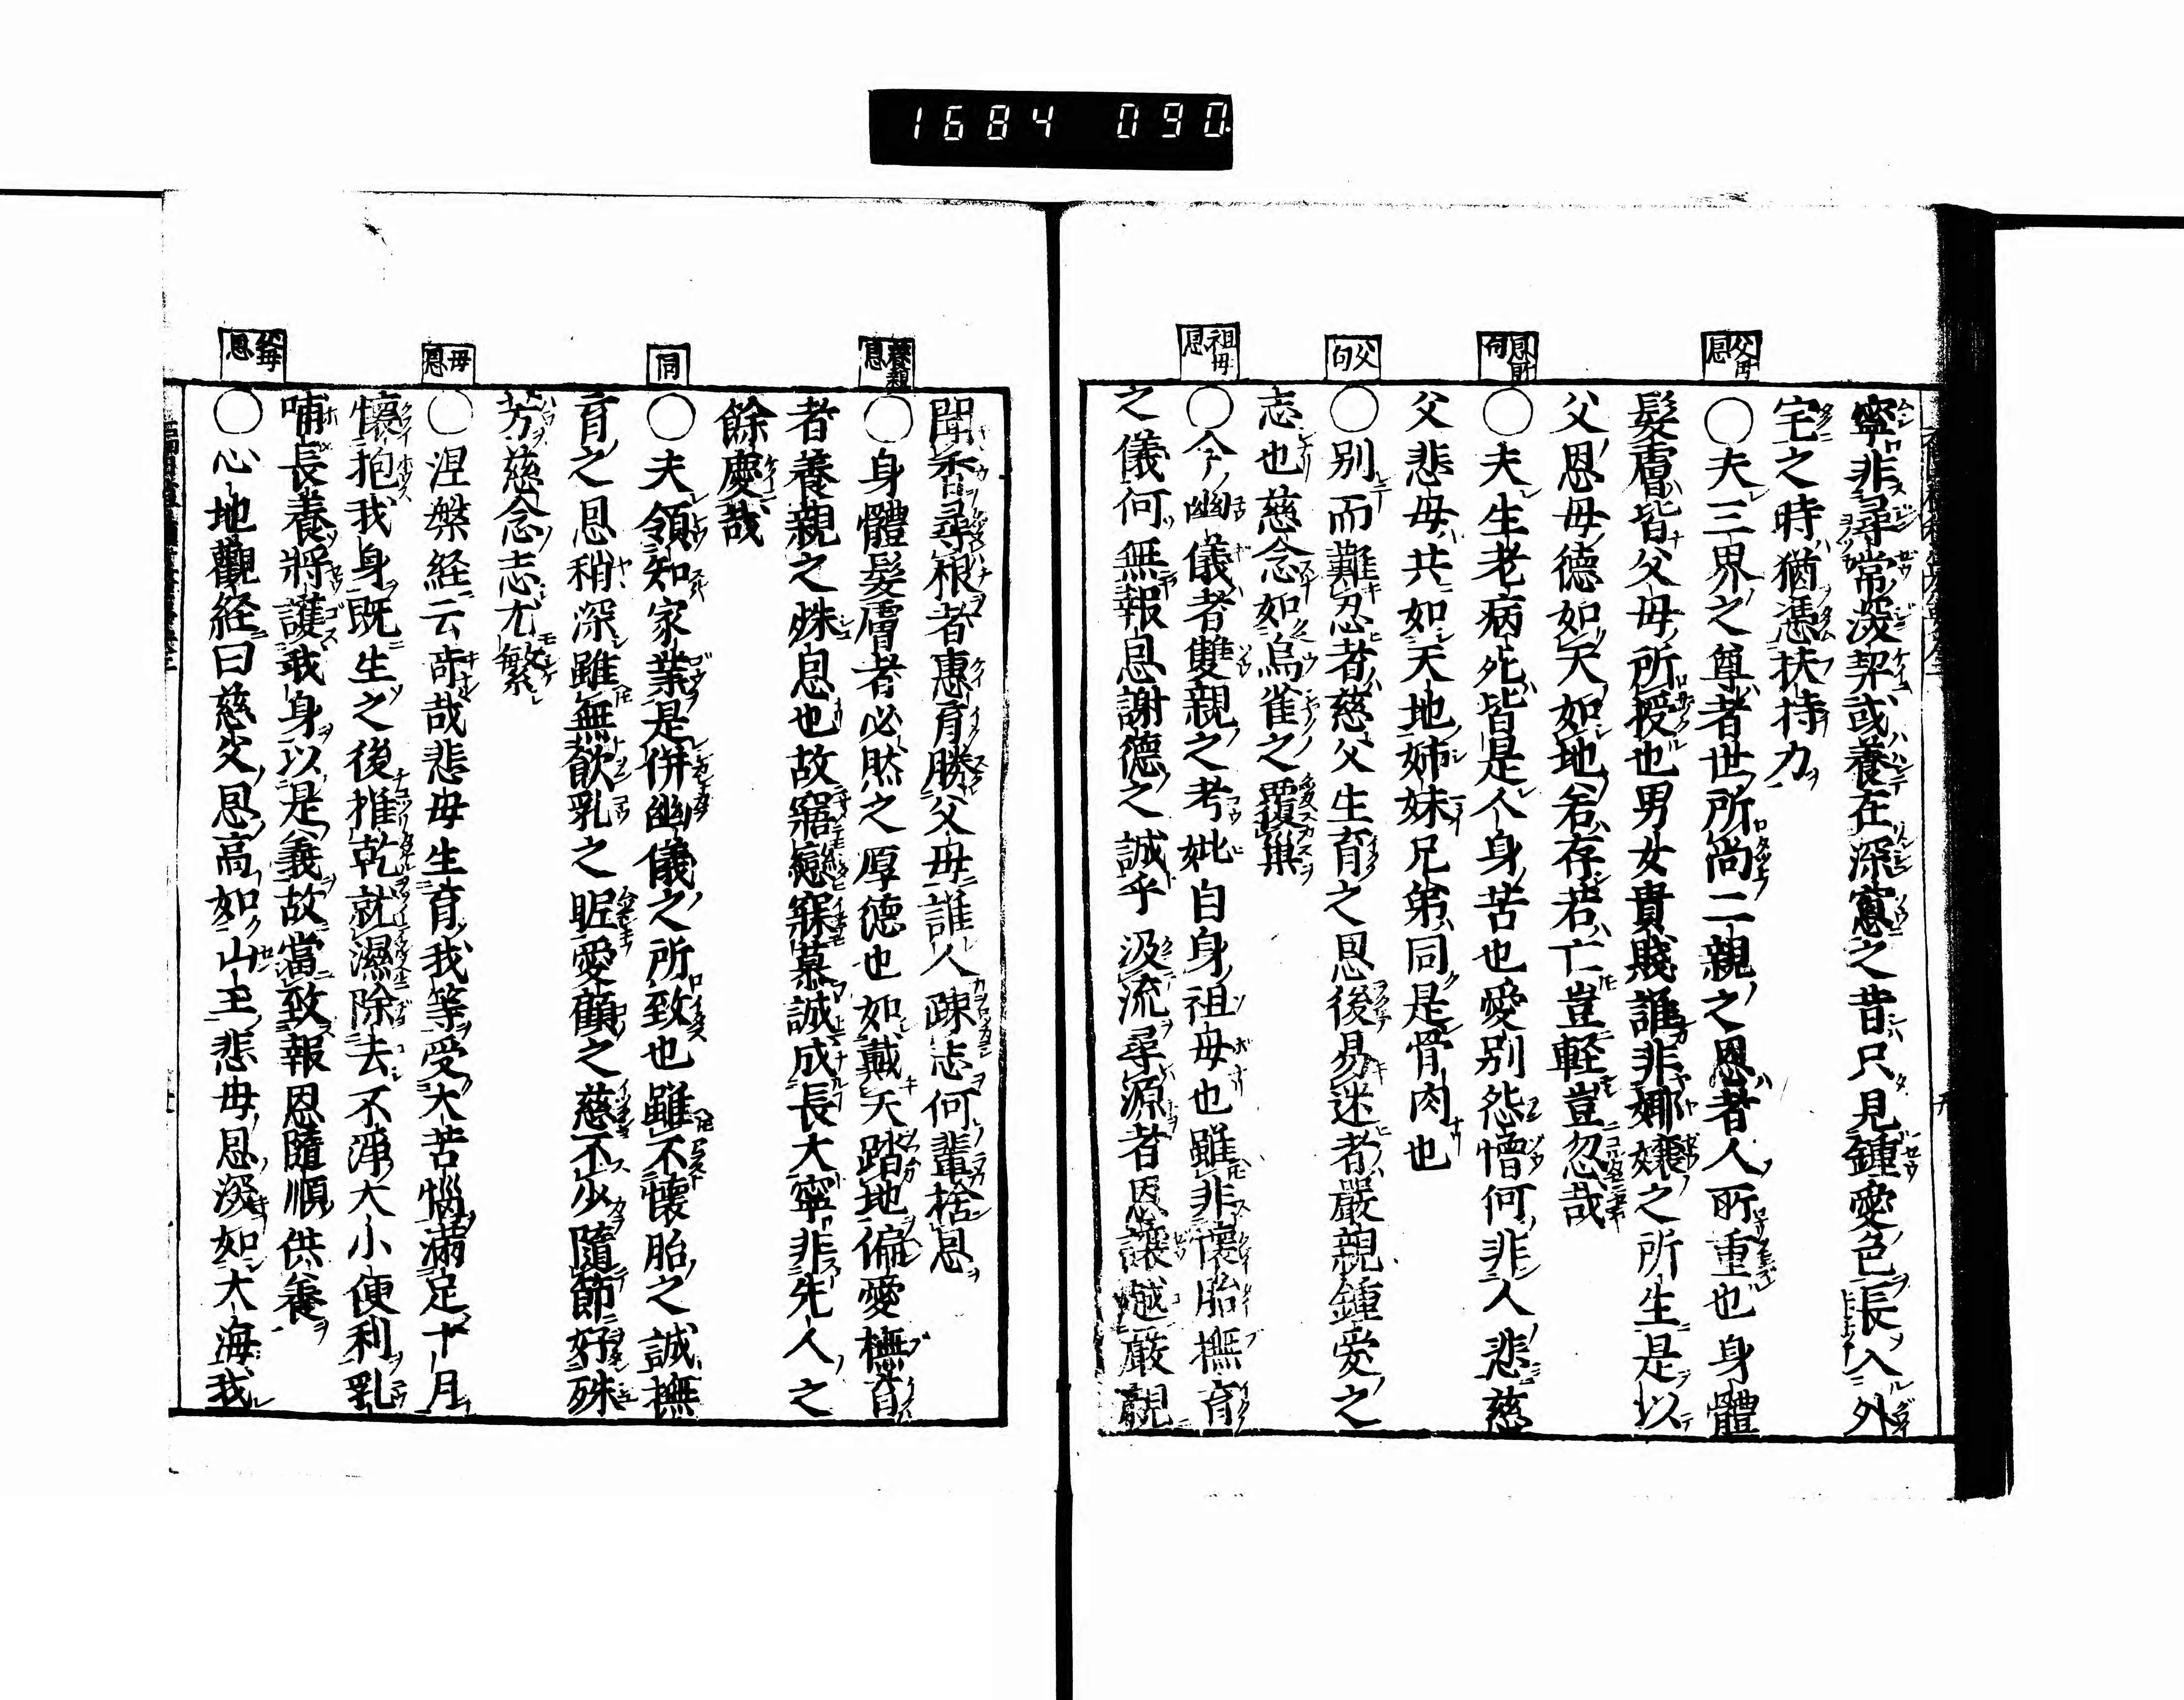 1684 090.
寧非尋常深契或養在深窓之昔只見鍾愛色長入外
宅之時猶憑扶持力
父母恩
○夫三界之尊者世所尚二親之恩者人所重也身體
髮膚皆父母所授也男女貴賤誰非娜孃之所生是以
父恩母德如天如地若存若亡豈輕豈忽哉
○夫生老病死皆是人身苦也愛別怨憎何非人悲慈
父悲母共如天地姉妹兄弟同是骨肉也
父句
○別而難忍者慈父生育之恩後易迷者嚴親鍾愛之
志也慈念如烏雀之覆巢
祖母恩
○今幽儀者雙親之考妣自身祖母也雖非懷胎撫育
之儀何無報恩謝德之誠乎汲流尋源者恩讓越嚴親
聞香尋根者惠育勝父母誰人疎志何輩捨恩
養親恩
○身體髮膚者必然之厚德也如戴天踏地偏愛撫育
者養親之殊恩也故寤戀寐慕誠成長大寧非先人之
餘慶哉
同
○夫領知家業是併幽儀之所致也雖不懷胎之誠撫
育之恩稍深雖無飮乳之昵愛顧之慈不少隨節好殊
芳慈念志尤繁
母恩
○涅槃経云奇哉悲母生育我等受大苦惱滿足十月
懷抱我身既生之後推乾就濕除去不淨大小便利乳
哺長養將護我身以是義故當致報恩隨順供養
父母恩
○心地觀経曰慈父恩高如山王悲母恩深如大海我